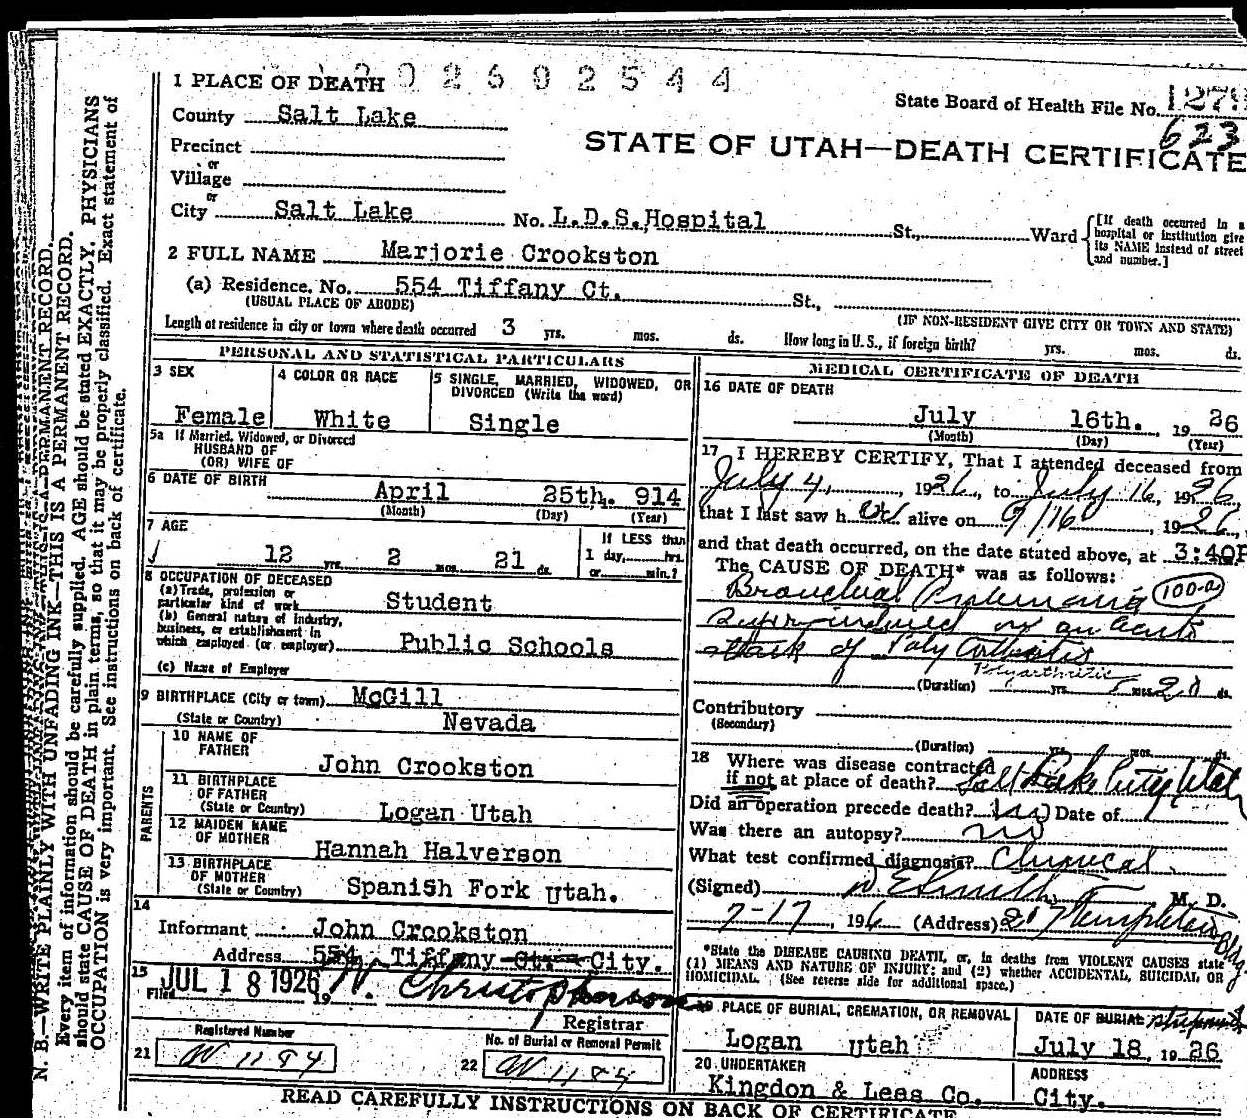 2602544
1 PLACE OF DEATH
State Board of Health File No. 1279
623
County Salt Lake
STATE OF UTAH—DEATH CERTIFICATE
Precinct
or
Village
or
City Salt Lake No. L.D.S. Hospital St., Ward
[If death occurred in a hospital or institution give its NAME instead of street and number.]
2 FULL NAME Marjorie Crookston
(a) Residence. No. 554 Tiffany Ct. St.,
(USUAL PLACE OF ABODE) (IF NON-RESIDENT GIVE CITY OR TOWN AND STATE)
Length of residence in city or town where death occurred 3 yrs. mos. ds. How long in U. S., if foreign birth? yrs. mos. ds.
PERSONAL AND STATISTICAL PARTICULARS
3 SEX
Female
4 COLOR OR RACE
White
5 SINGLE, MARRIED, WIDOWED, OR DIVORCED (Write the word)
Single
5a If Married, Widowed, or Divorced
HUSBAND OF
(OR) WIFE OF
6 DATE OF BIRTH April 25th. 914
(Month) (Day) (Year)
7 AGE
12 yrs. 2 mos. 21 ds.
If LESS than
1 day, hrs.
or min.?
8 OCCUPATION OF DECEASED
(a) Trade, profession or particular kind of work Student
(b) General nature of industry, business, or establishment in which employed (or employer) Public Schools
(c) Name of Employer
9 BIRTHPLACE (City or town) McGill
(State or Country) Nevada
PARENTS
10 NAME OF FATHER John Crookston
11 BIRTHPLACE OF FATHER (State or Country) Logan Utah
12 MAIDEN NAME OF MOTHER Hannah Halverson
13 BIRTHPLACE OF MOTHER (State or Country) Spanish Fork Utah.
14
Informant John Crookston
Address 554 Tiffany Ct. City.
15 Filed JUL 18 1926 19 W. Christopherson
Registrar
Registered Number
21 W 1184
No. of Burial or Removal Permit
22 W 1184
MEDICAL CERTIFICATE OF DEATH
16 DATE OF DEATH
July 16th. , 1926
(Month) (Day) (Year)
17 I HEREBY CERTIFY, That I attended deceased from
July 4, 1926, to July 16, 1926,
that I last saw her alive on 7/16, 1926,
and that death occurred, on the date stated above, at 3:40P
The CAUSE OF DEATH* was as follows:
Bronchial Pneumonia 100-a
Superinduced on an acute
attack of Poly Arthritis
Polyarthritis
(Duration) yrs. mos. 20 ds.
Contributory
(Secondary)
(Duration) yrs. mos. ds.
18 Where was disease contracted
if not at place of death? Salt Lake City Utah
Did an operation precede death? No Date of
Was there an autopsy? no
What test confirmed diagnosis? Clinical
(Signed) M. D.
7-17, 1926 (Address) 207 Templeton Bldg.
*State the DISEASE CAUSING DEATH, or, in deaths from VIOLENT CAUSES state
(1) MEANS AND NATURE OF INJURY; and (2) whether ACCIDENTAL, SUICIDAL, OR
HOMICIDAL. (See reverse side for additional space.)
19 PLACE OF BURIAL, CREMATION, OR REMOVAL
Logan Utah
DATE OF BURIAL shipment
July 18, 1926
20 UNDERTAKER
Kingdon & Lees Co.
ADDRESS
City.
READ CAREFULLY INSTRUCTIONS ON BACK OF CERTIFICATE
N. B.—WRITE PLAINLY WITH UNFADING INK—THIS IS A PERMANENT RECORD.
Every item of information should be carefully supplied. AGE should be stated EXACTLY. PHYSICIANS
should state CAUSE OF DEATH in plain terms, so that it may be properly classified. Exact statement of
OCCUPATION is very important. See instructions on back of certificate.